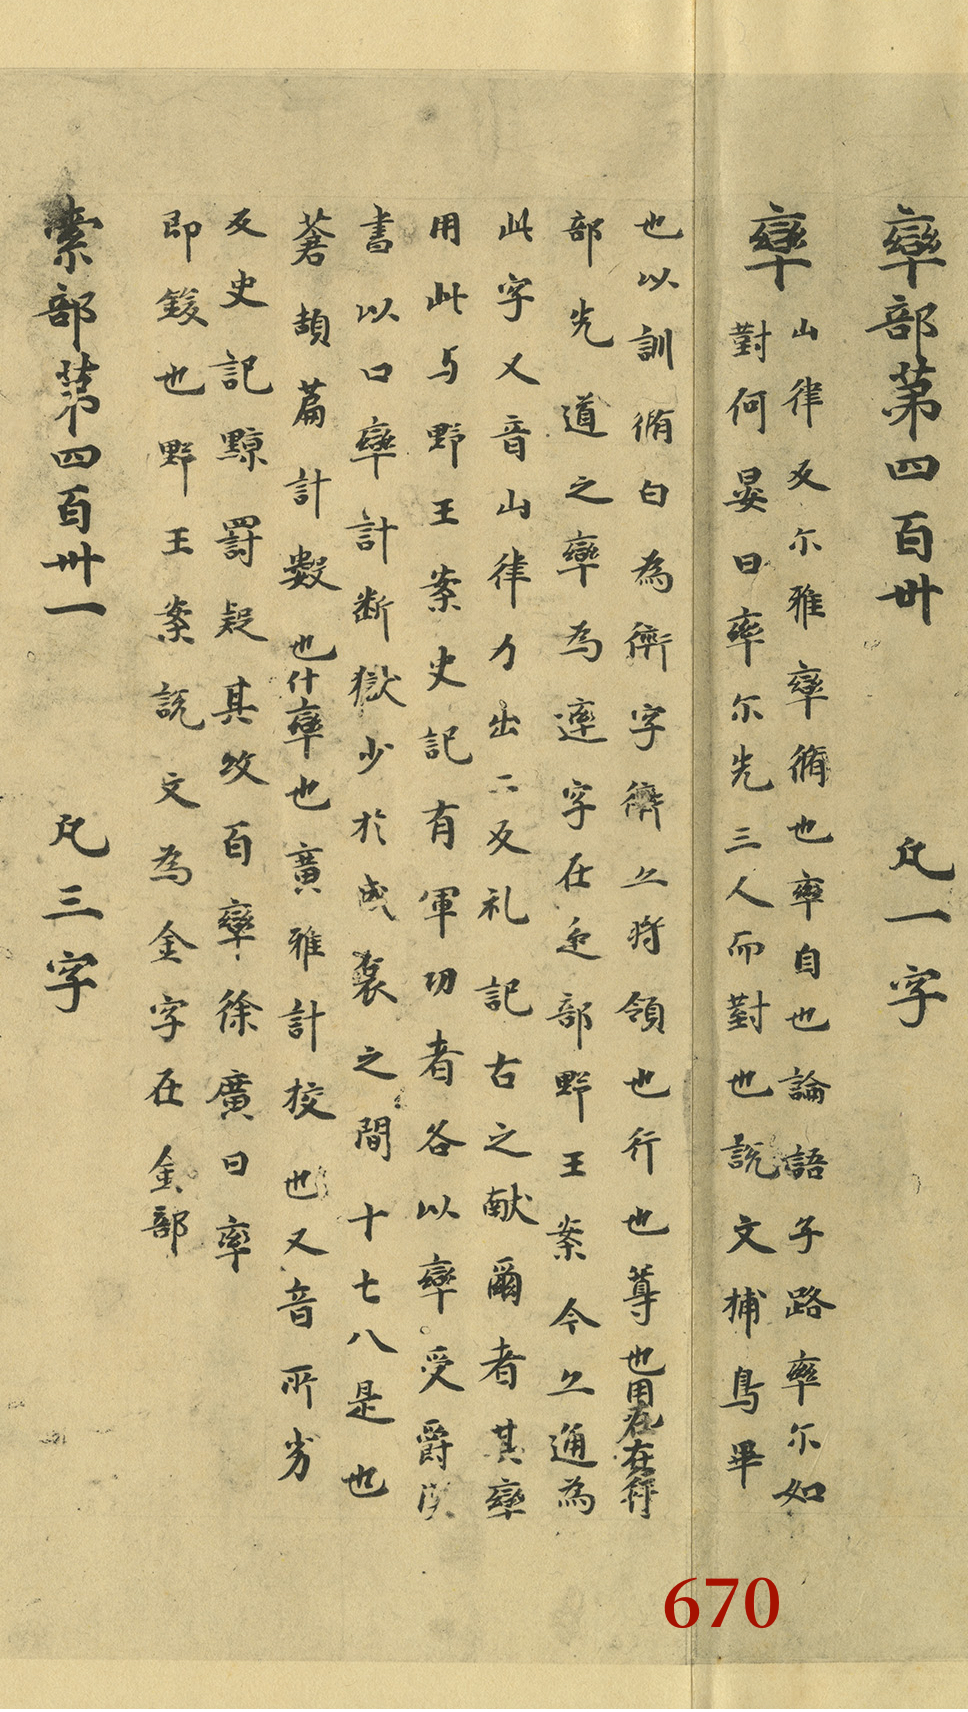 率部第四百卌 凡一字
率 山律反尒雅率脩也率自也論語子路率尒如
對何晏曰率尒先三人而對也說文捕鳥畢
也以訓脩自為衛字衛之將領也行也蕁也用在行
部先道之率為逹字在辵部野王案今之通為
此字又音山律力出二反礼記古之献爾者其率
用此与野王案史記有軍功者各以率受爵漢
書以口率計断獄少於成哀之間十七八是也
蒼頡篇計數也什率也廣雅計挍也又音所劣
反史記黥罰疑其攽百率徐廣曰率
即鍰也野王案說文為金字在金部
素部第四百卌一 凡三字
670